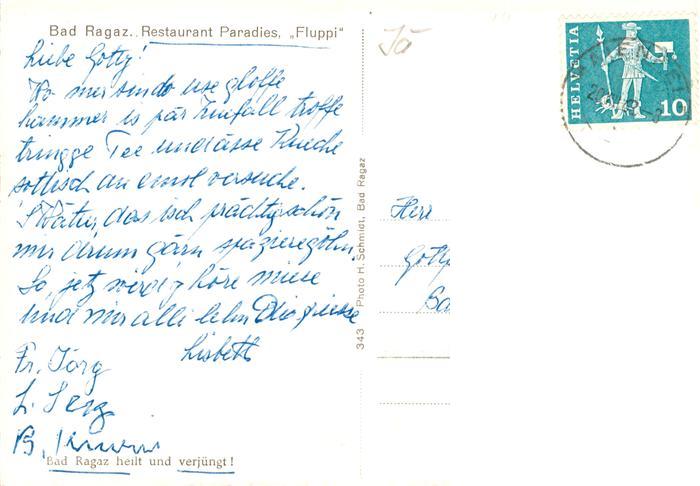 Bad Ragaz. Restaurant Paradies, „Fluppi"
Liebe Gotty!
Wo mer sind use gloffe
hämmer is pär Zuefall troffe
tringge Tee und ässe Kueche
söttisch au emol versueche.
S'Wätter, das isch prächtig schön
mir drum gärn spaziere göhn.
So, jetz wird i höre müese
und mir alli lehn Di grüesse
Lisbeth
Fr. Jörg
L.
B.
Bad Ragaz heilt und verjüngt!
343 Photo H. Schmidt, Bad Ragaz
HELVETIA
10
Herr